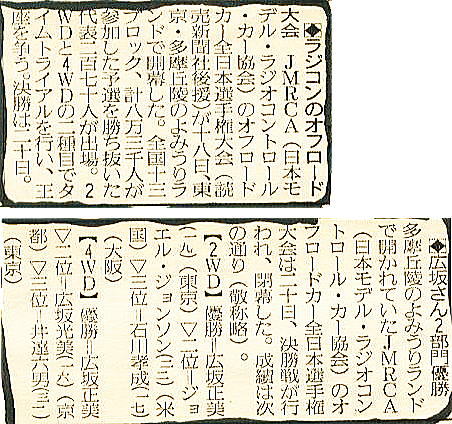 ◆ラジコンのオフロード
大会 JMRCA(日本モ
デル・ラジオコントロール
・カー協会)のオフロード
カー全日本選手権大会(読
売新聞社後援)が十八日、東
京・多摩丘陵のよみうりラ
ンドで開幕した。全国十三
ブロック、計八万三千人が
参加した予選を勝ち抜いた
代表二百七十人が出場。2
WDと4WDの二種目でタ
イムトライアルを行い、王
座を争う。決勝は二十日。
◆広坂さん2部門優勝
多摩丘陵のよみうりランド
で開かれていたJMRCA
(日本モデル・ラジオコン
トロール・カー協会)のオ
フロードカー全日本選手権
大会は二十日、決勝戦が行
われ、閉幕した。成績は次
の通り(敬称略)。
【2WD】優勝=広坂正美
(一九)(東京)▽二位=ジョ
エル・ジョンソン(二三)(米
国)▽三位=石川孝成(一七)
(大阪)
【4WD】優勝=広坂正美
▽二位=広坂光美(一六)(京
都)▽三位=井達六男(三二)
(東京)